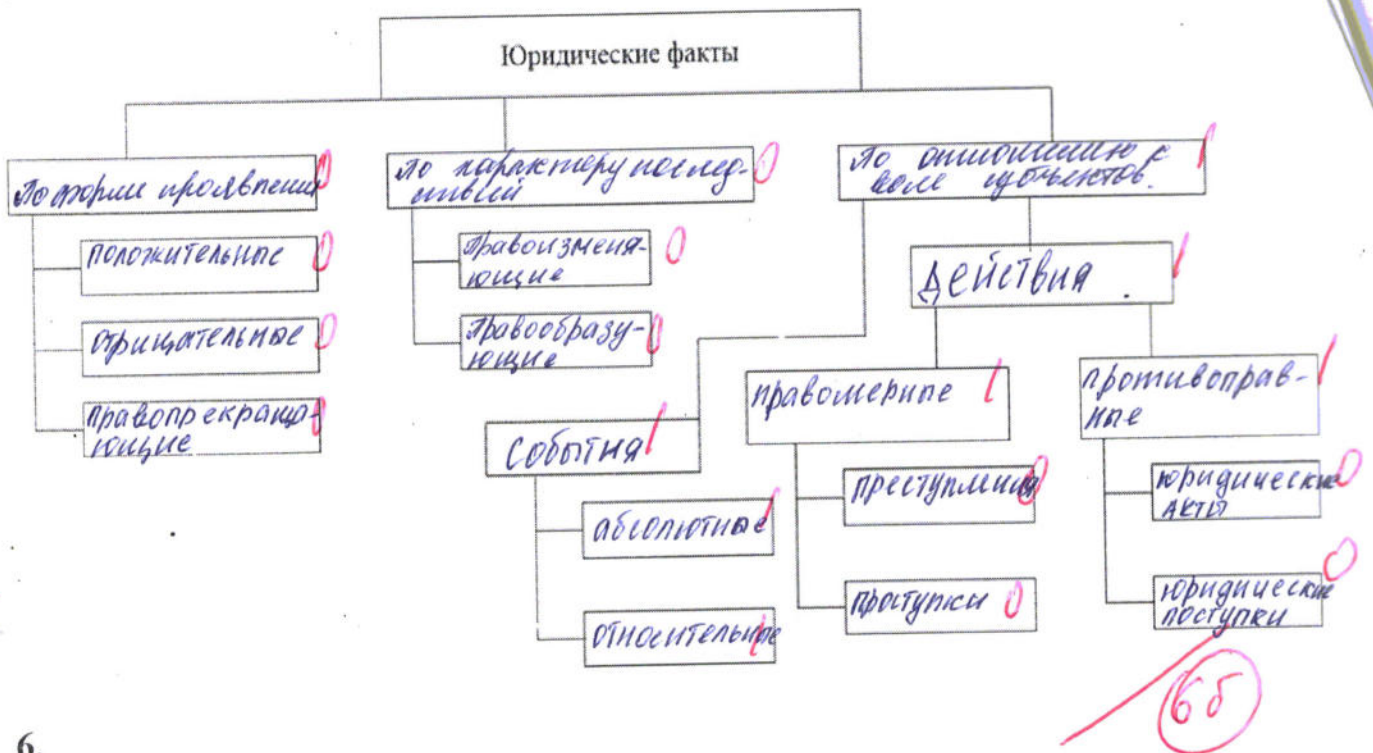 Юридические факты
По форме проявления
0
положительные
0
отрицательные
0
правопрекраща-
ющие
0
По характеру послед-
ствий
0
Правоизменя-
ющие
0
Правообразу-
ющие
0
По отношению к
воле субъектов.
1
Действия
1
События
1
абсолютные
1
относительные
1
правомерные
1
преступления
0
проступки
0
противоправ-
ные
1
юридические
акты
0
юридические
поступки
0
6 б
6.